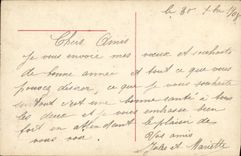 le 30
Chers Amis
je vous envoie mes vœux et souhaits
de bonne année et tout ce que vous
pouvez désirer, ce que je vous souhaite
surtout c'est une bonne santé à tous
les deux et je vous embrasse bien
fort en attendant le plaisir de
vous voir
Vos amis
Jules et Mariette